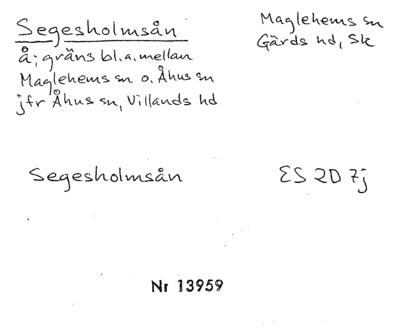 Segesholmsån
å; gräns bl.a. mellan
Maglehems sn o. Åhus sn
jfr Åhus sn, Villands hd
Maglehems sn
Gärds hd, Sk
Segesholmsån
ES 2D 7j
Nr 13959